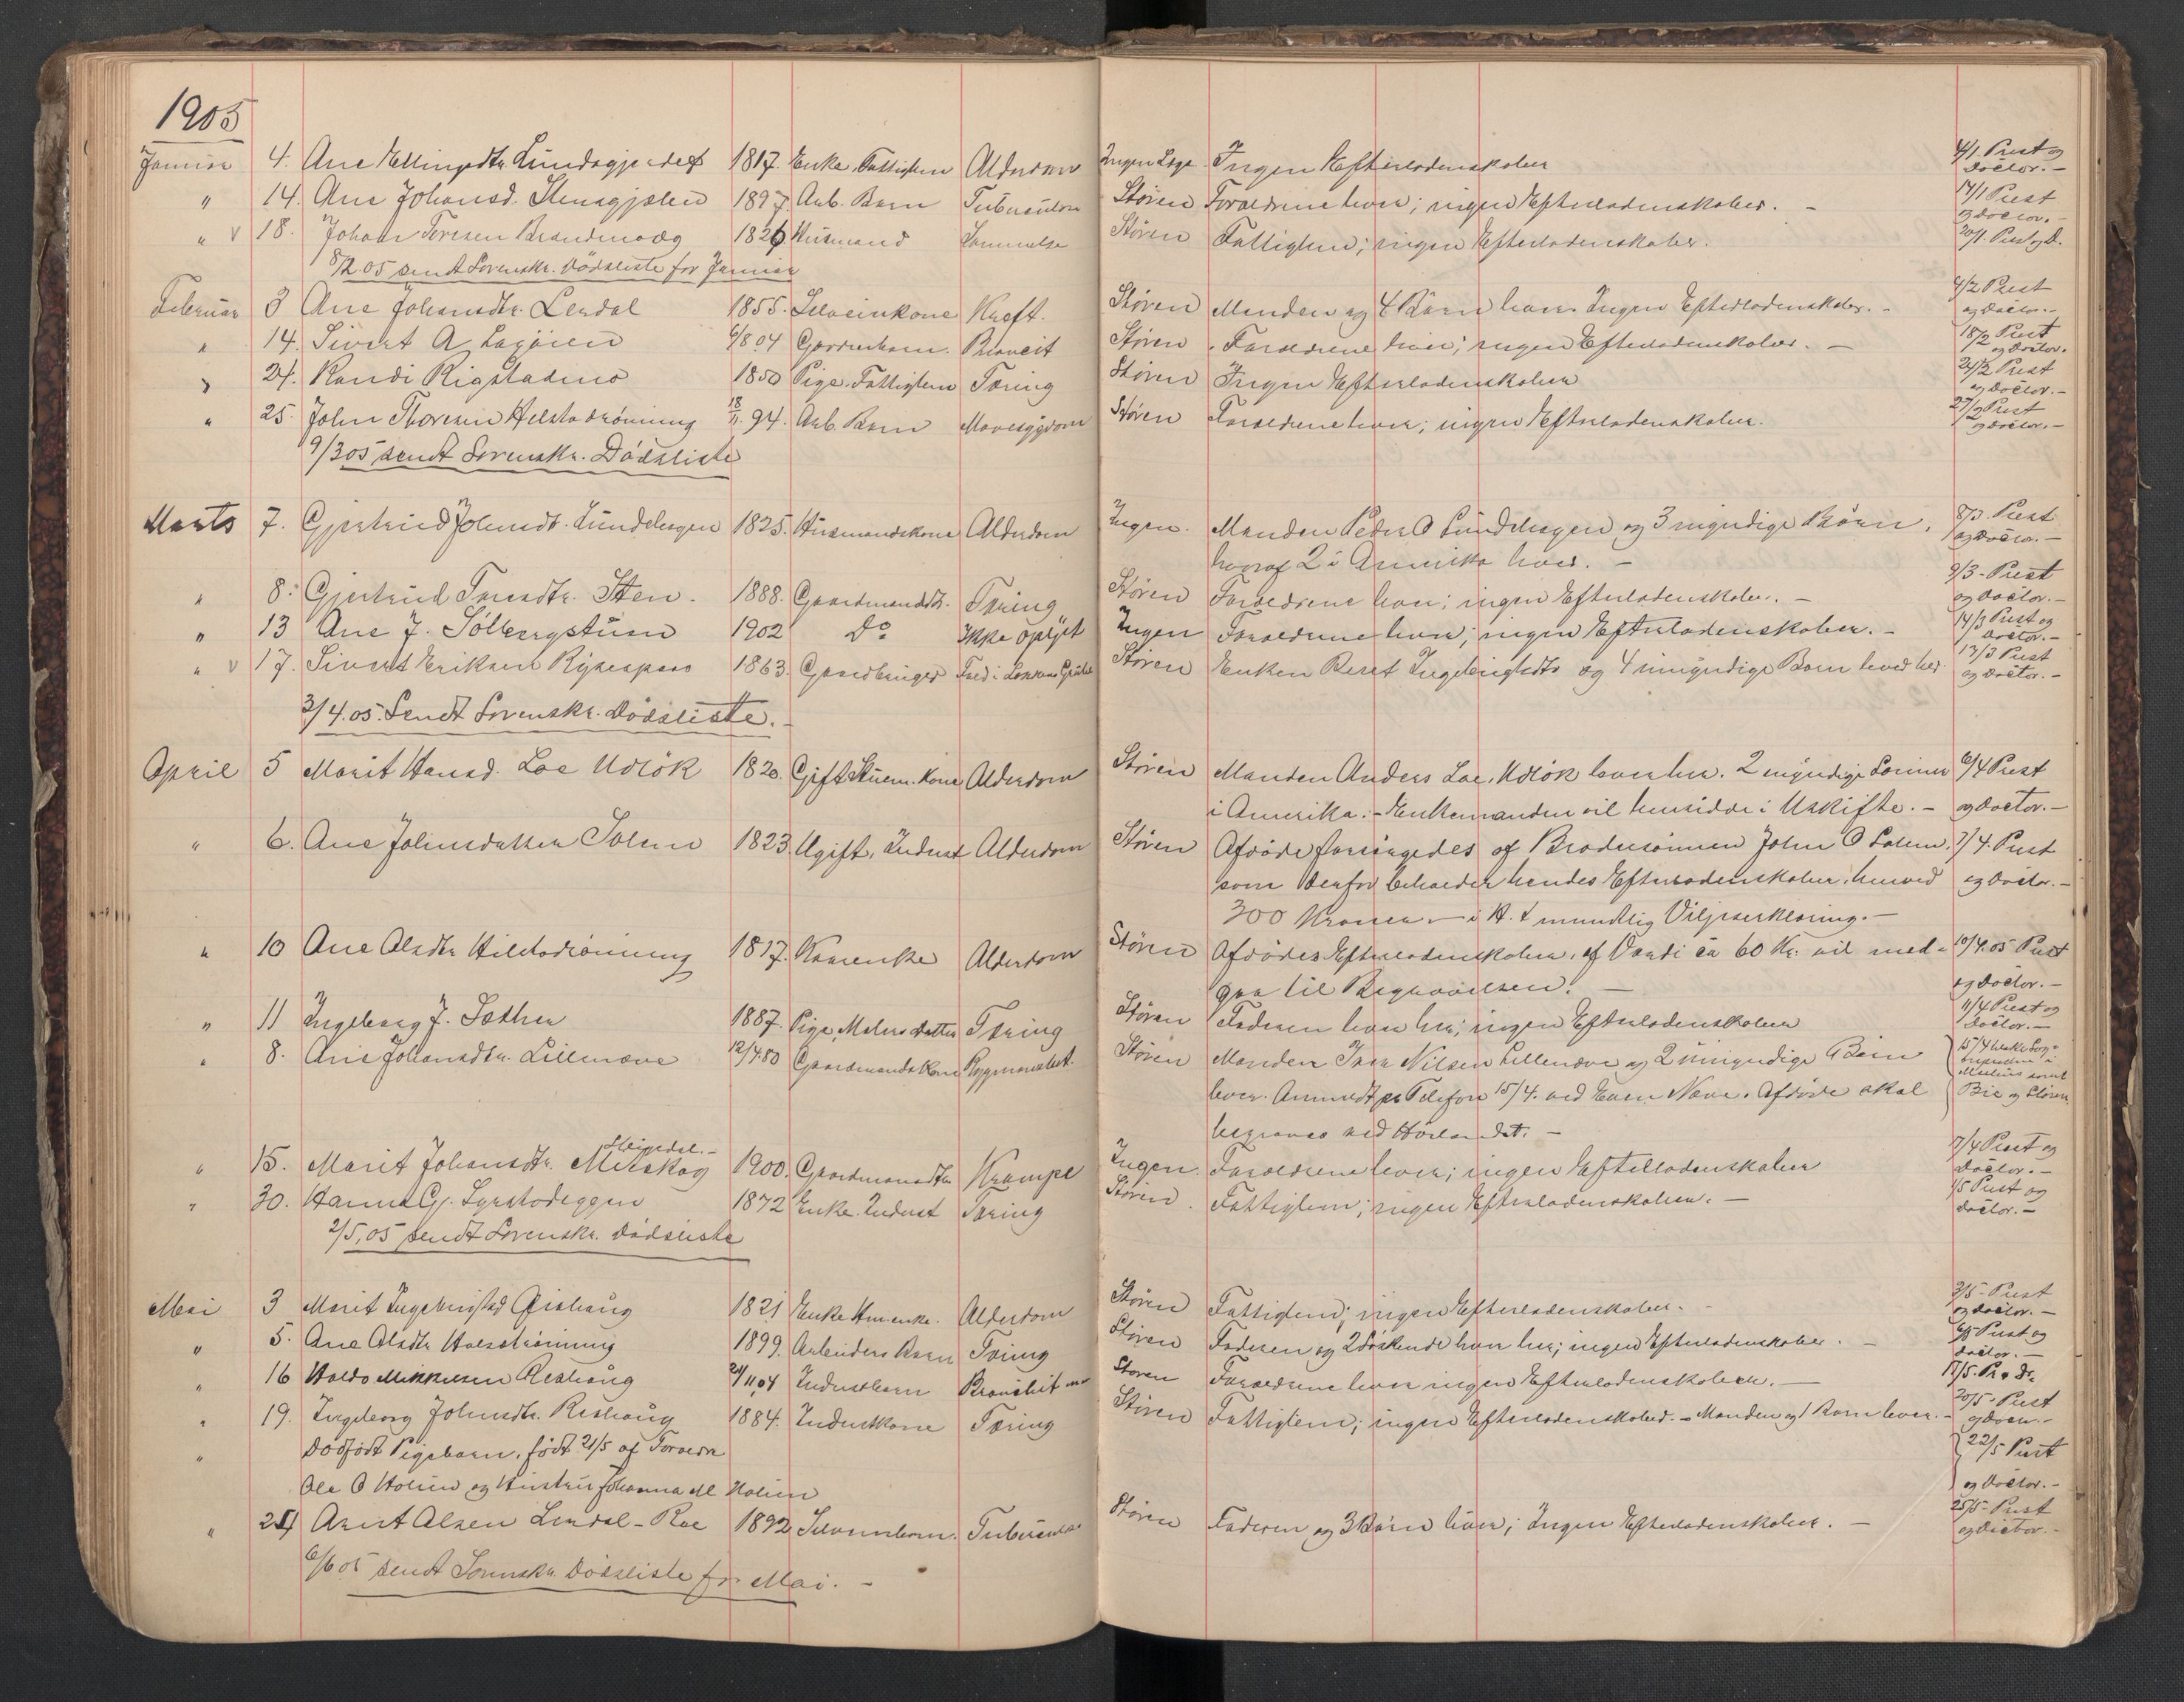 1905
Januar 4. Ane Ellingsdtr. Lundagjerdet 1817. Enke, Fattiglem Alderdom Ingen Læge Ingen Efterladenskaber 4/1 Prest og Doctor. —
" 14. Ane Johansd. Stensgjølen 1897. Arb. Barn Tuberculose Støren Forældrene lever; ingen Efterladenskaber. — 14/1 Prest og Doctor. —
" V 18. Johan Toresen Brandmoeg 1826 Husmand Støren Fattiglem; ingen Efterladenskaber. 20/1. Prest og D.
8/2.05 sendt Sorenskr. Dødsliste for Januar
Februar 3 Ane Johansdtr. Lendal 1855. Kræft. Støren Manden og 4 Børn lever. Ingen Efterladenskaber. — 4/2 Prest og Doctor. —
" 14. Sivert A. 6/8 04 Gaardmbarn. Støren Forældrene lever; ingen Efterladenskaber. — 18/2 Prest og Doctor.
" 24. Randi Rigstadmo 1850 Pige, Fattiglem Tæring Støren Ingen Efterladenskaber 24/2 Prest og Doctor. —
" 25. John Thoresen Helstadrønning 18/11 94. Arb. Barn Mavesygdom Støren Forældrene lever; ingen Efterladenskaber. 27/2 Prest og Doctor. —
9/3 05 sendt Sorenskr. Dødsliste
Marts 7. Gjertrud Johnsdtr. Lundehagen 1825. Husmandskone Alderdom Ingen. Manden Peder O Lundehagen og 3 myndige Børn, 8/3. Prest og Doctor. —
hvoraf 2 i Amerika lever. —
" 8. Gjertrud Toresdtr. Sten. 1888. Gaardmandsdtr. Tæring Støren Forældrene lever; ingen Efterladenskaber. — 9/3 - Prest og Doctor. —
" 13 Ane J. Solbergstuen 1902 Do Ikke oplyst Ingen Forældrene lever; ingen Efterladenskaber. — 14/3 Prest og Doctor. —
" V 17. Sivert Eriksen 1863. Gaardbruger Støren Enken Beret Ingebrigtsdtr og 4 umyndige Børn lever her Prest og Doctor. —
3/4.05. Sendt Sorenskr. Dødsliste. —
April 5 Marit Hansd. Loe Udløk 1820. Gift Husm. Kone Alderdom Støren Manden Anders Loe, Udløk lever her. 2 myndige Sønner 6/4 Prest
i Amerika. — Enkemanden vil hensidde i Uskifte. — og Doctor. —
" 6. Ane Johnsdatter Solem 1823. Ugift, Inderst Alderdom Støren Afdøde forsørgedes af Brodersønnen John O Solem, 7/4. Prest
som derfor beholder hendes Efterladenskaber, henved og Doctor. —
300 Kroner — i H. t mundtlig Viljeserklæring. —
" 10 Ane Olsdtr Hilstadrønning 1817. Kaarenke Alderdom Støren Afdødes Efterladenskaber, af Værdi ca 60 Kr. vil med- 10/4.05 Prest
gaa til Begravelsen. — og Doctor. —
" 11 Ingeborg J. Sæther 1887. Pige, Malers Datter Tæring Støren Faderen lever her; ingen Efterladenskaber 11/4 Prest og Doctor. —
" 8. Ane Johansdtr. Lillenæve 12/4.80 Gaardmands Kone Støren Manden Iver Nilsen Lillenæve og 2 umyndige Børn
lever. Anmeldt pr Telefon 15/4. ved Even Næve. Afdøde skal
begraves ved Hørlandet. —
" 15. Marit Johansdtr. Moeskog 1900. Gaardmandsdtr Krampe Ingen Forældrene lever; ingen Efterladenskaber 17/4 Prest og Doctor. —
" 30. Hanna Gj. 1872 Enke. Inderst Tæring Støren Fattiglem; ingen Efterladenskaber. — 1/5 Prest og Doctor. —
2/5.05 sendt Sorenskr. Dødsliste
Mai 3 Marit Ingebrigtsd. 1821 Enke Alderdom Støren Fattiglem; ingen Efterladenskaber. — 3/5 - Prest og Doctor. —
" 5. Ane Olsdtr 1899. Arbeiders Barn Tæring Støren Faderen og 2 Søskende lever her; ingen Efterladenskaber. — 6/5 Prest og Doctor. —
" 16 Haldo Mikkelsen Reshaug 24/11.04 Inderstbarn Støren Forældrene lever ingen Efterladenskaber. — 17/5. Pr. og Dr.
" 19. Ingeborg Johnsdtr. Reshaug 1884. Inderstkone Tæring Støren Fattiglem; ingen Efterladenskaber. — Manden og 1 Barn lever. — 20/5 - Prest og Doctor. —
" Dødfødt Pigebarn, født 21/5 af Forældre 22/5 Prest
Ole O Holum og Hustru Johanna M Holum og Doctor. —
" 24 Arnt Olsen Lendal-Roe 1892 Tuberculose Støren Faderen og 3 Børn lever; Ingen Efterladenskaber. — 25/5 - Prest og Doctor. —
6/6 05 sendt Sorenskr. Dødsliste for Mai. —